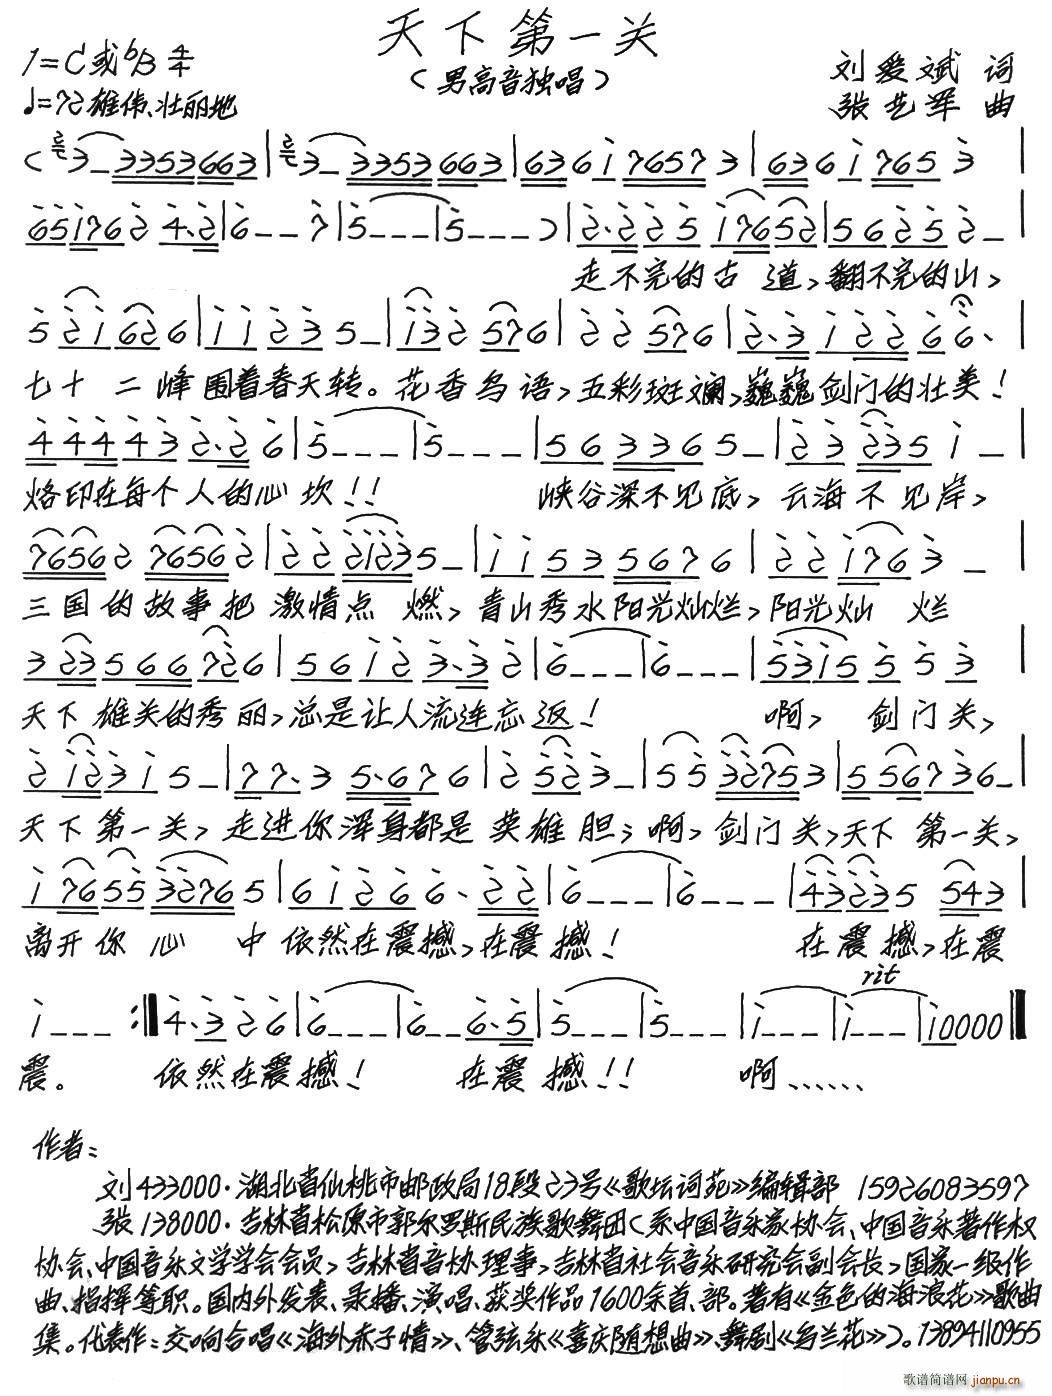 天下第一关
1=C或bB 4/4
(男高音独唱)
刘爱斌 词
♩=72 雄伟、壮丽地
张艺军 曲
走不完的古 道,翻不完的山,
七十 二峰围着春天转。花香鸟语,五彩斑斓,巍巍剑门的壮美!
烙印在每个人的心坎!! 峡谷深不见底,云海不见岸,
三国的故事把 激情点 燃,青山秀水阳光灿烂,阳光灿 烂
天下 雄关的秀丽,总是让人流连忘返! 啊, 剑门关,
天下第一关,走进你浑身都是 英雄胆;啊,剑门关,天下 第一关,
离开你 心 中依然在震撼,在震撼! 在震撼,在震
rit
震。 依然在震撼! 在震撼!! 啊……
作者:
刘433000·湖北省仙桃市邮政局18段23号《歌坛词苑》编辑部 15926083597
张138000·吉林省松原市郭尔罗斯民族歌舞团(系中国音乐家协会、中国音乐著作权
协会、中国音乐文学学会会员,吉林省音协理事,吉林省社会音乐研究会副会长,国家一级作
曲、指挥等职。国内外发表、录播、演唱、获奖作品1600余首、部。著有《金色的海浪花》歌曲
集。代表作:交响合唱《海外赤子情》、管弦乐《喜庆随想曲》、舞剧《乌兰花》)。13894110955
歌谱简谱网
jianpu.cn